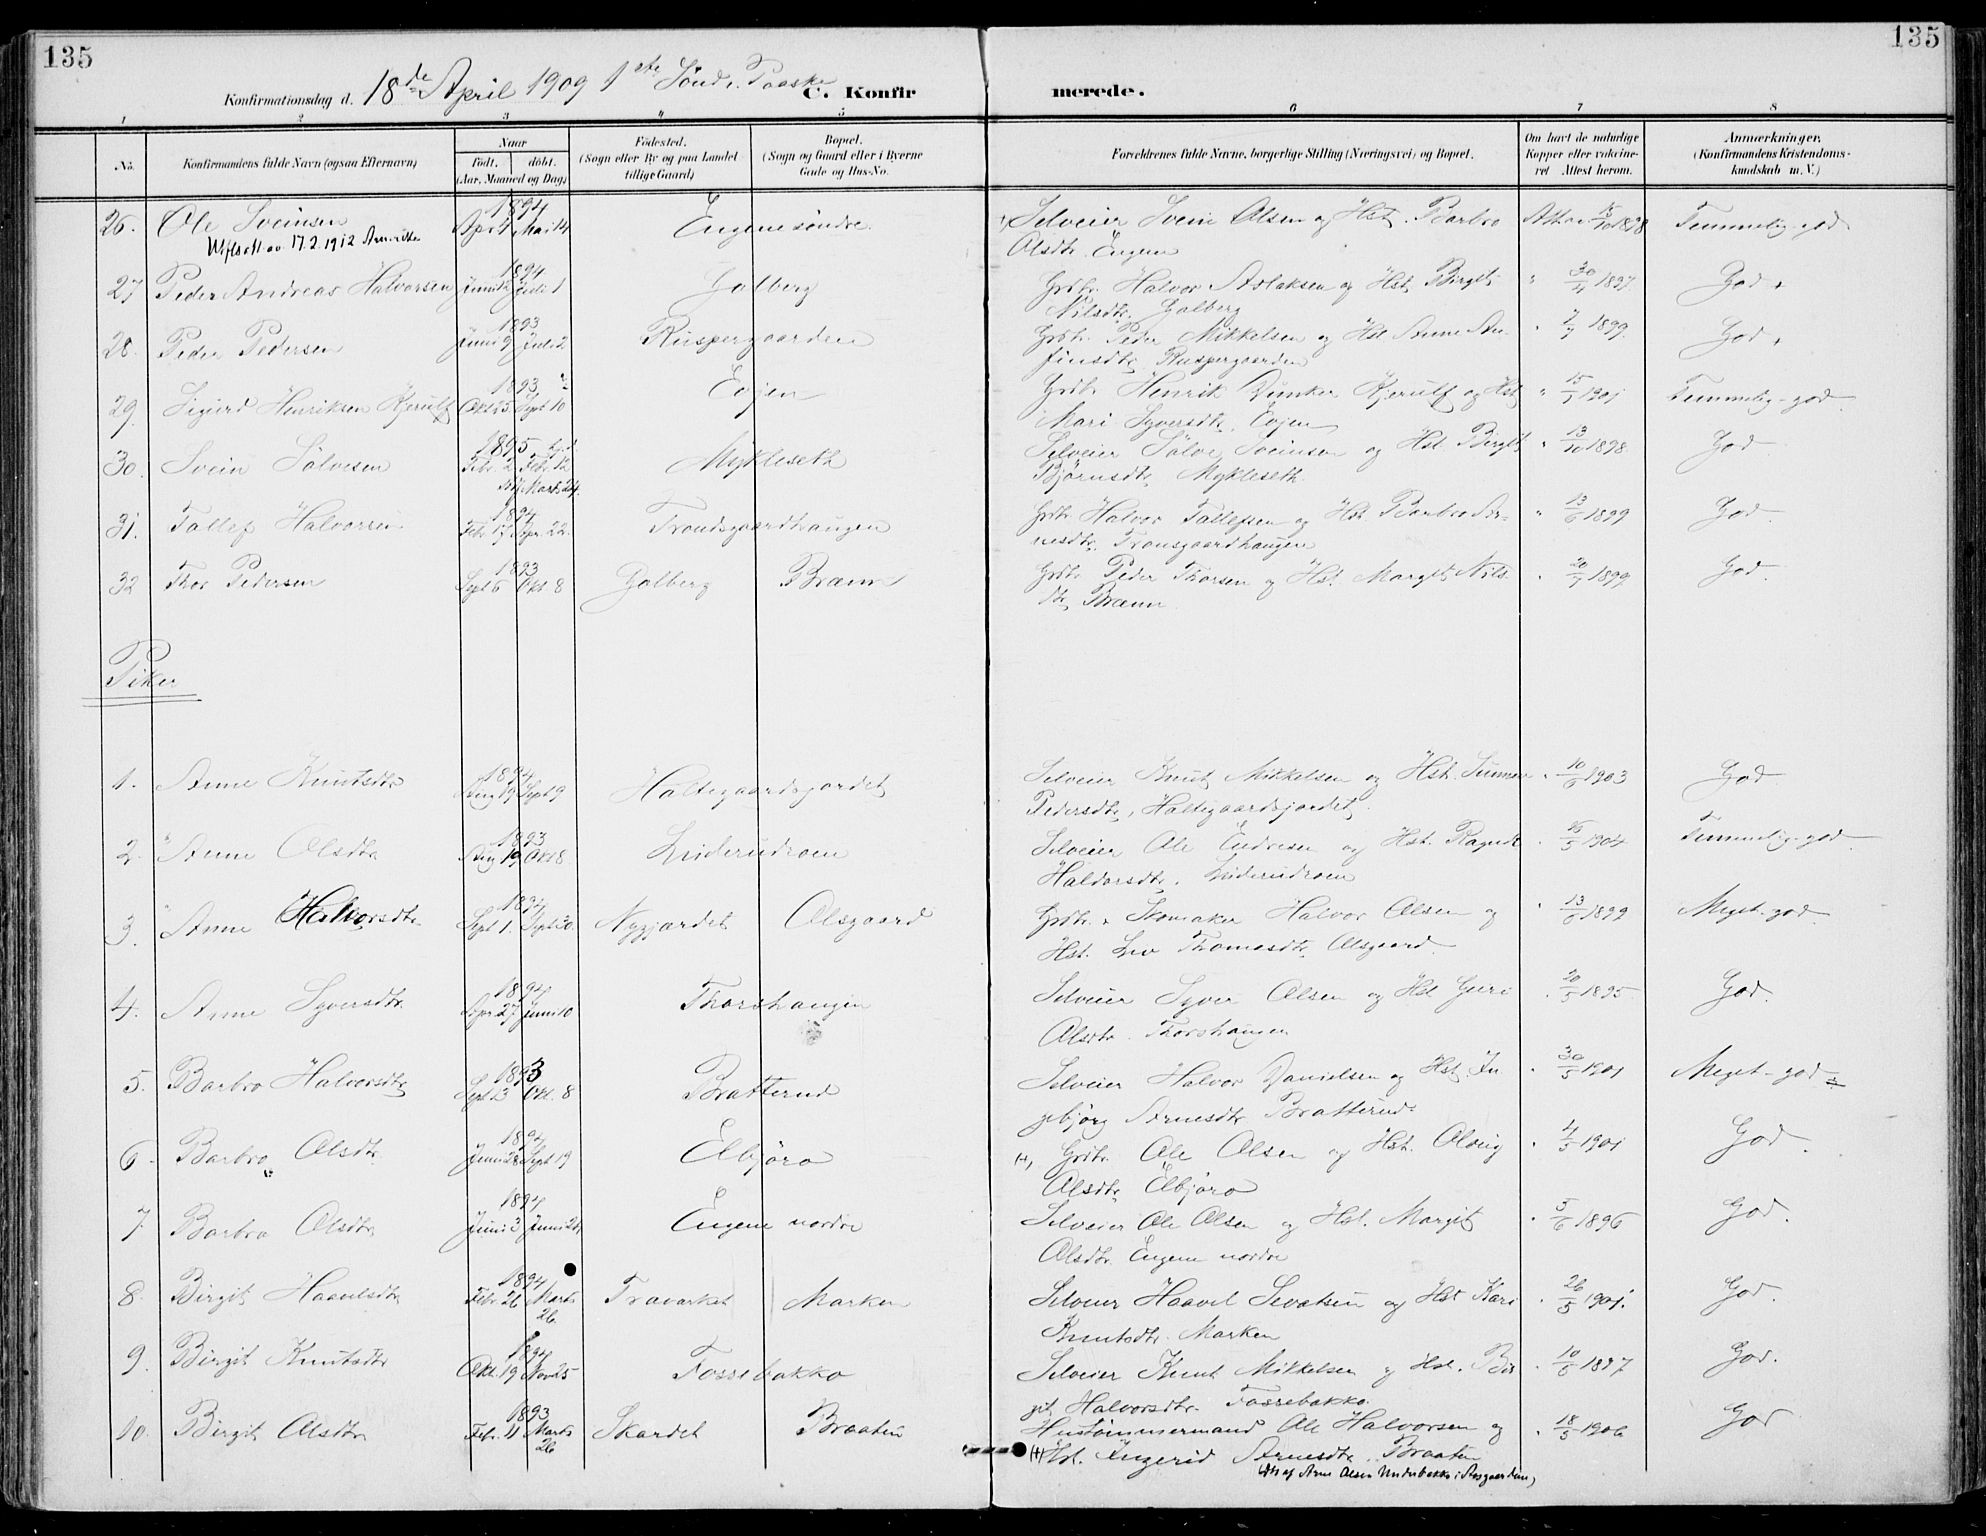 135
135
Konfirmationsdag d. 18de April 1909 1ste Sønd. Paaske C. Konfirmerede.
1 2 3 4 5 6 7 8
No.
Konfirmandens fulde Navn (ogsaa Efternavn)
Naar
født. døbt.
(Aar, Maaned og Dag)
Fødested.
(Sogn eller By og paa Landet
tillige Gaard)
Bopæl.
(Sogn og Gaard eller i Byerne
Gade og Hus-No.
Forældrenes fulde Navne, borgerlige Stilling (Næringsvei) og Bopæl.
Om havt de naturlige
Kopper eller vaccineret
Attest herom.
Anmærkninger.
(Konfirmandens Kristendomskundskab
m. V.)
26. Ole Sveinsen 1894 Apr. 4 Mai 14 Engene søndre Selveier Svein Olsen og Hst. Barbro 1898 Temmelig god
17.2.1912 Amerika Olsdtr. Engene
27 Peder Andreas Halvorsen 1894 Juni 12 Juli 1 Golberg Grdbr. Halvor Aslaksen og Hst. Birgit " 30/4 1897 God
Nilsdtr. Golberg
28. Peder Pedersen 1893 Juni 9 Juli 2 Ruspergaarden Grdbr. Peder Mikkelsen og Hst Anne An- " 1899 God
finsdtr. Ruspergaarden
29. Sigurd Henriksen Kjerulf 1893 Okt 25 Sept 10 Evjen Grdbr Henrik Dunker Kjerulf og Hst " 1901 Temmelig-god
Mari Syversdtr. Evjen
30. Svein Sølvesen 1895 Febr. 2 Febr. 12 Mykleseth Selveier Sølve Sveinsen og Hst. Birgit " 13/10 1898 God
Marts 24 Bjørnsdtr. Mykleseth
31. Tallef Halvorsen 1894 Febr 17 Apr. 22 Trondsgaardhaugen Grdbr Halvor Tallefsen og Hst. Barbro Ar- " 13/6 1899 God
nesdtr. Tronsgaardhaugen
32 Thor Pedersen 1893 Sept 6 Okt 8 Golberg Brænn Grdbr Peder Thorsen og Hst. Margit Nils- " 1899 God
dtr. Brænn
Piker
1. Anne Knutsdtr 1894 Aug 19 Sept 9 Haltegaardsjordet Selveier Knut Mikkelsen og Hst. Sunneve " 10/6 1903 God
Pedersdtr, Haltegaardsjordet
2. Anne Olsdtr 1893 Aug 19 Okt 8 Linderudmoen Selveier Ole Endresen og Hst. Ragndi " 1904 Temmelig-god
Haldorsdtr. Linderudmoen
3. Anne Halvorsdtr. 1894 Sept 1. Sept 30. Nygjordet Olsgaard Grdbr. Skomaker Halvor Olsen og " 13/6 1899 Meget-god
Hst. Liv Thomasdtr. Olsgaard
4. Anne Syversdtr. 1894 Apr 27 Juni 10 Thorshaugen Selveier Syver Olsen og Hst Guri " 20/5 1895 God.
Olsdtr. Thorshaugen
5. Barbro Halvorsdtr 1893 Sept 3 Okt. 8 Bratterud Selveier Halvor Danielsen og Hst. In- " 30/5 1901 Meget-god
gebjørg Arnesdtr Bratterud
6 Barbro Olsdtr. 1894 Juni 28 Sept 19 Elbjøro Grdbr. Ole Olsen og Hst. Olaug " 4/5 1901 God.
Olsdtr. Elbjøro
7. Barbro Olsdtr 1894 Juni 3 Juni 24 Engene nordre Selveier Ole Olsen og Hst. Margit " 5/6 1896 God
Olsdtr. Engene nordre
8. Birgit Haavelsdtr 1894 Febr. 26 Marts Travarket Marken Selveier Haavel Sevatsen og Hst Kari " 26/5 1901. God.
26. Knutsdtr. Marken
9 Birgit Knutsdtr 1894 Okt. 19 Nov 25 Fossebakko Selveier Knut Mikkelsen og Hst. Bir- " 10/5 1897 God.
git Halvorsdtr. Fossebakko
10. Birgit Olsdtr 1893 Febr. 4 Marts Skardet Braaten Hustømmermand Ole Halvorsen og " 18/5 1906 God
26 Hst. Ingerid Arnesdtr. Braaten